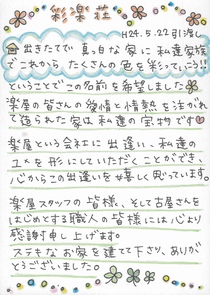 彩楽荘
H24.5.22 引渡し
出きたてで 真っ白な 家に 私達家族
でこれから たくさんの 色を 彩っていこう!!
ということで この名前を 希望しました
楽屋の皆さんの 愛情と 情熱を 注がれ
て造られた 家は 私達の 宝物です
楽屋という会社に 出逢い、私達の
ユメを 形にしていただくことができ、
心からこの出逢いを 嬉しく思っています。
楽屋スタッフの 皆様、そして古屋さんを
はじめとする職人の 皆様には 心より
感謝申し上げます。
ステキなお家を 建てて下さり、ありが
とうございました。